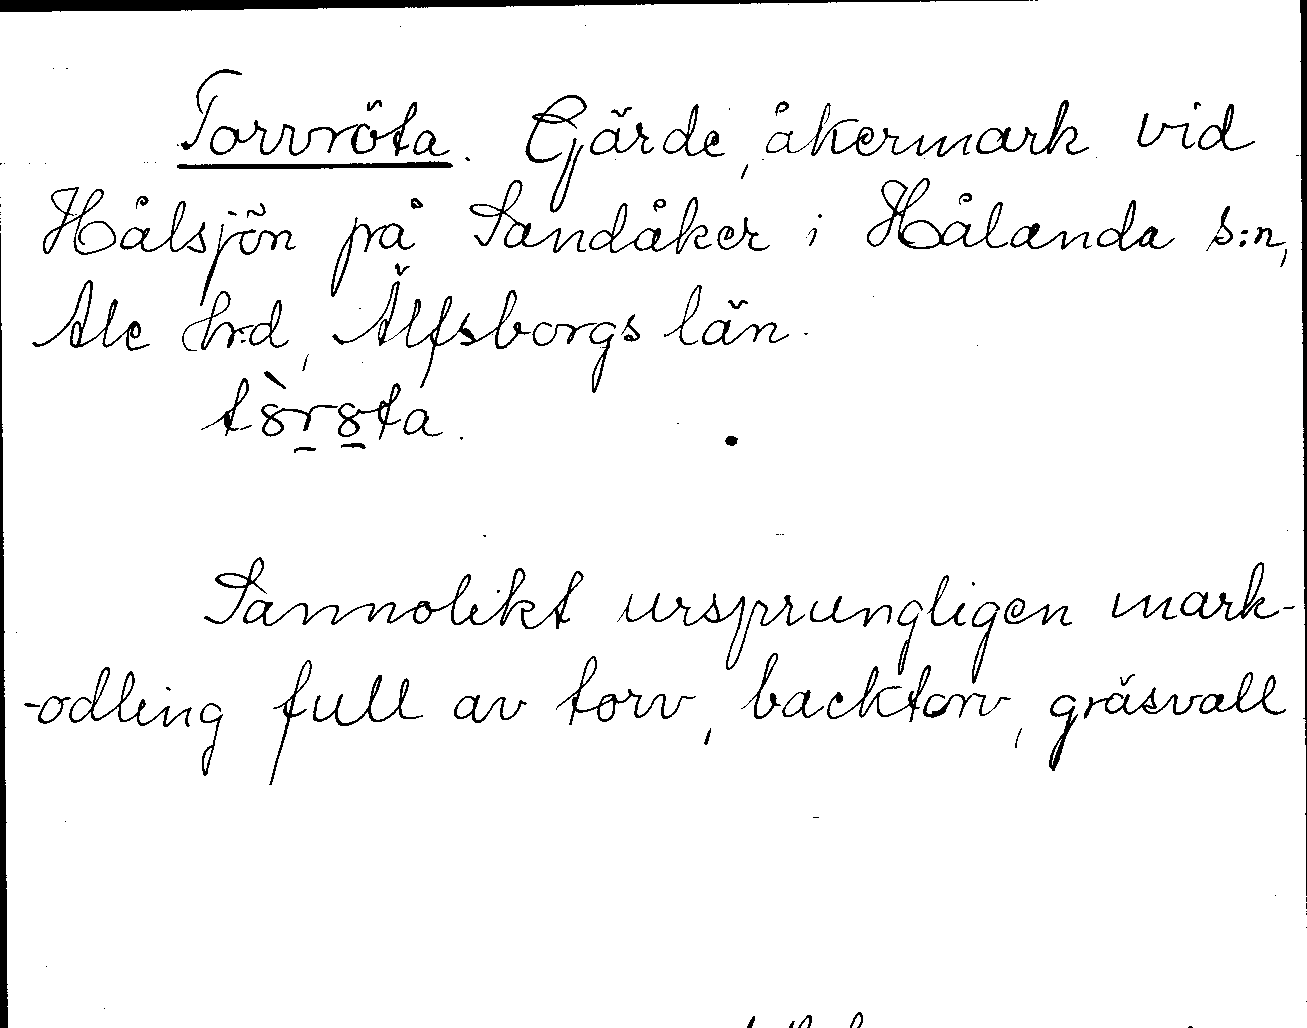 Torvröta. Gärde, åkermark vid
Hålsjön på Sandåker i Hålanda s:n,
Ale hrd, Älfsborgs län.
tȣ̀rȣta.
Sannolikt ursprungligen mark-
-odling full av torv, backtorv, gräsvall